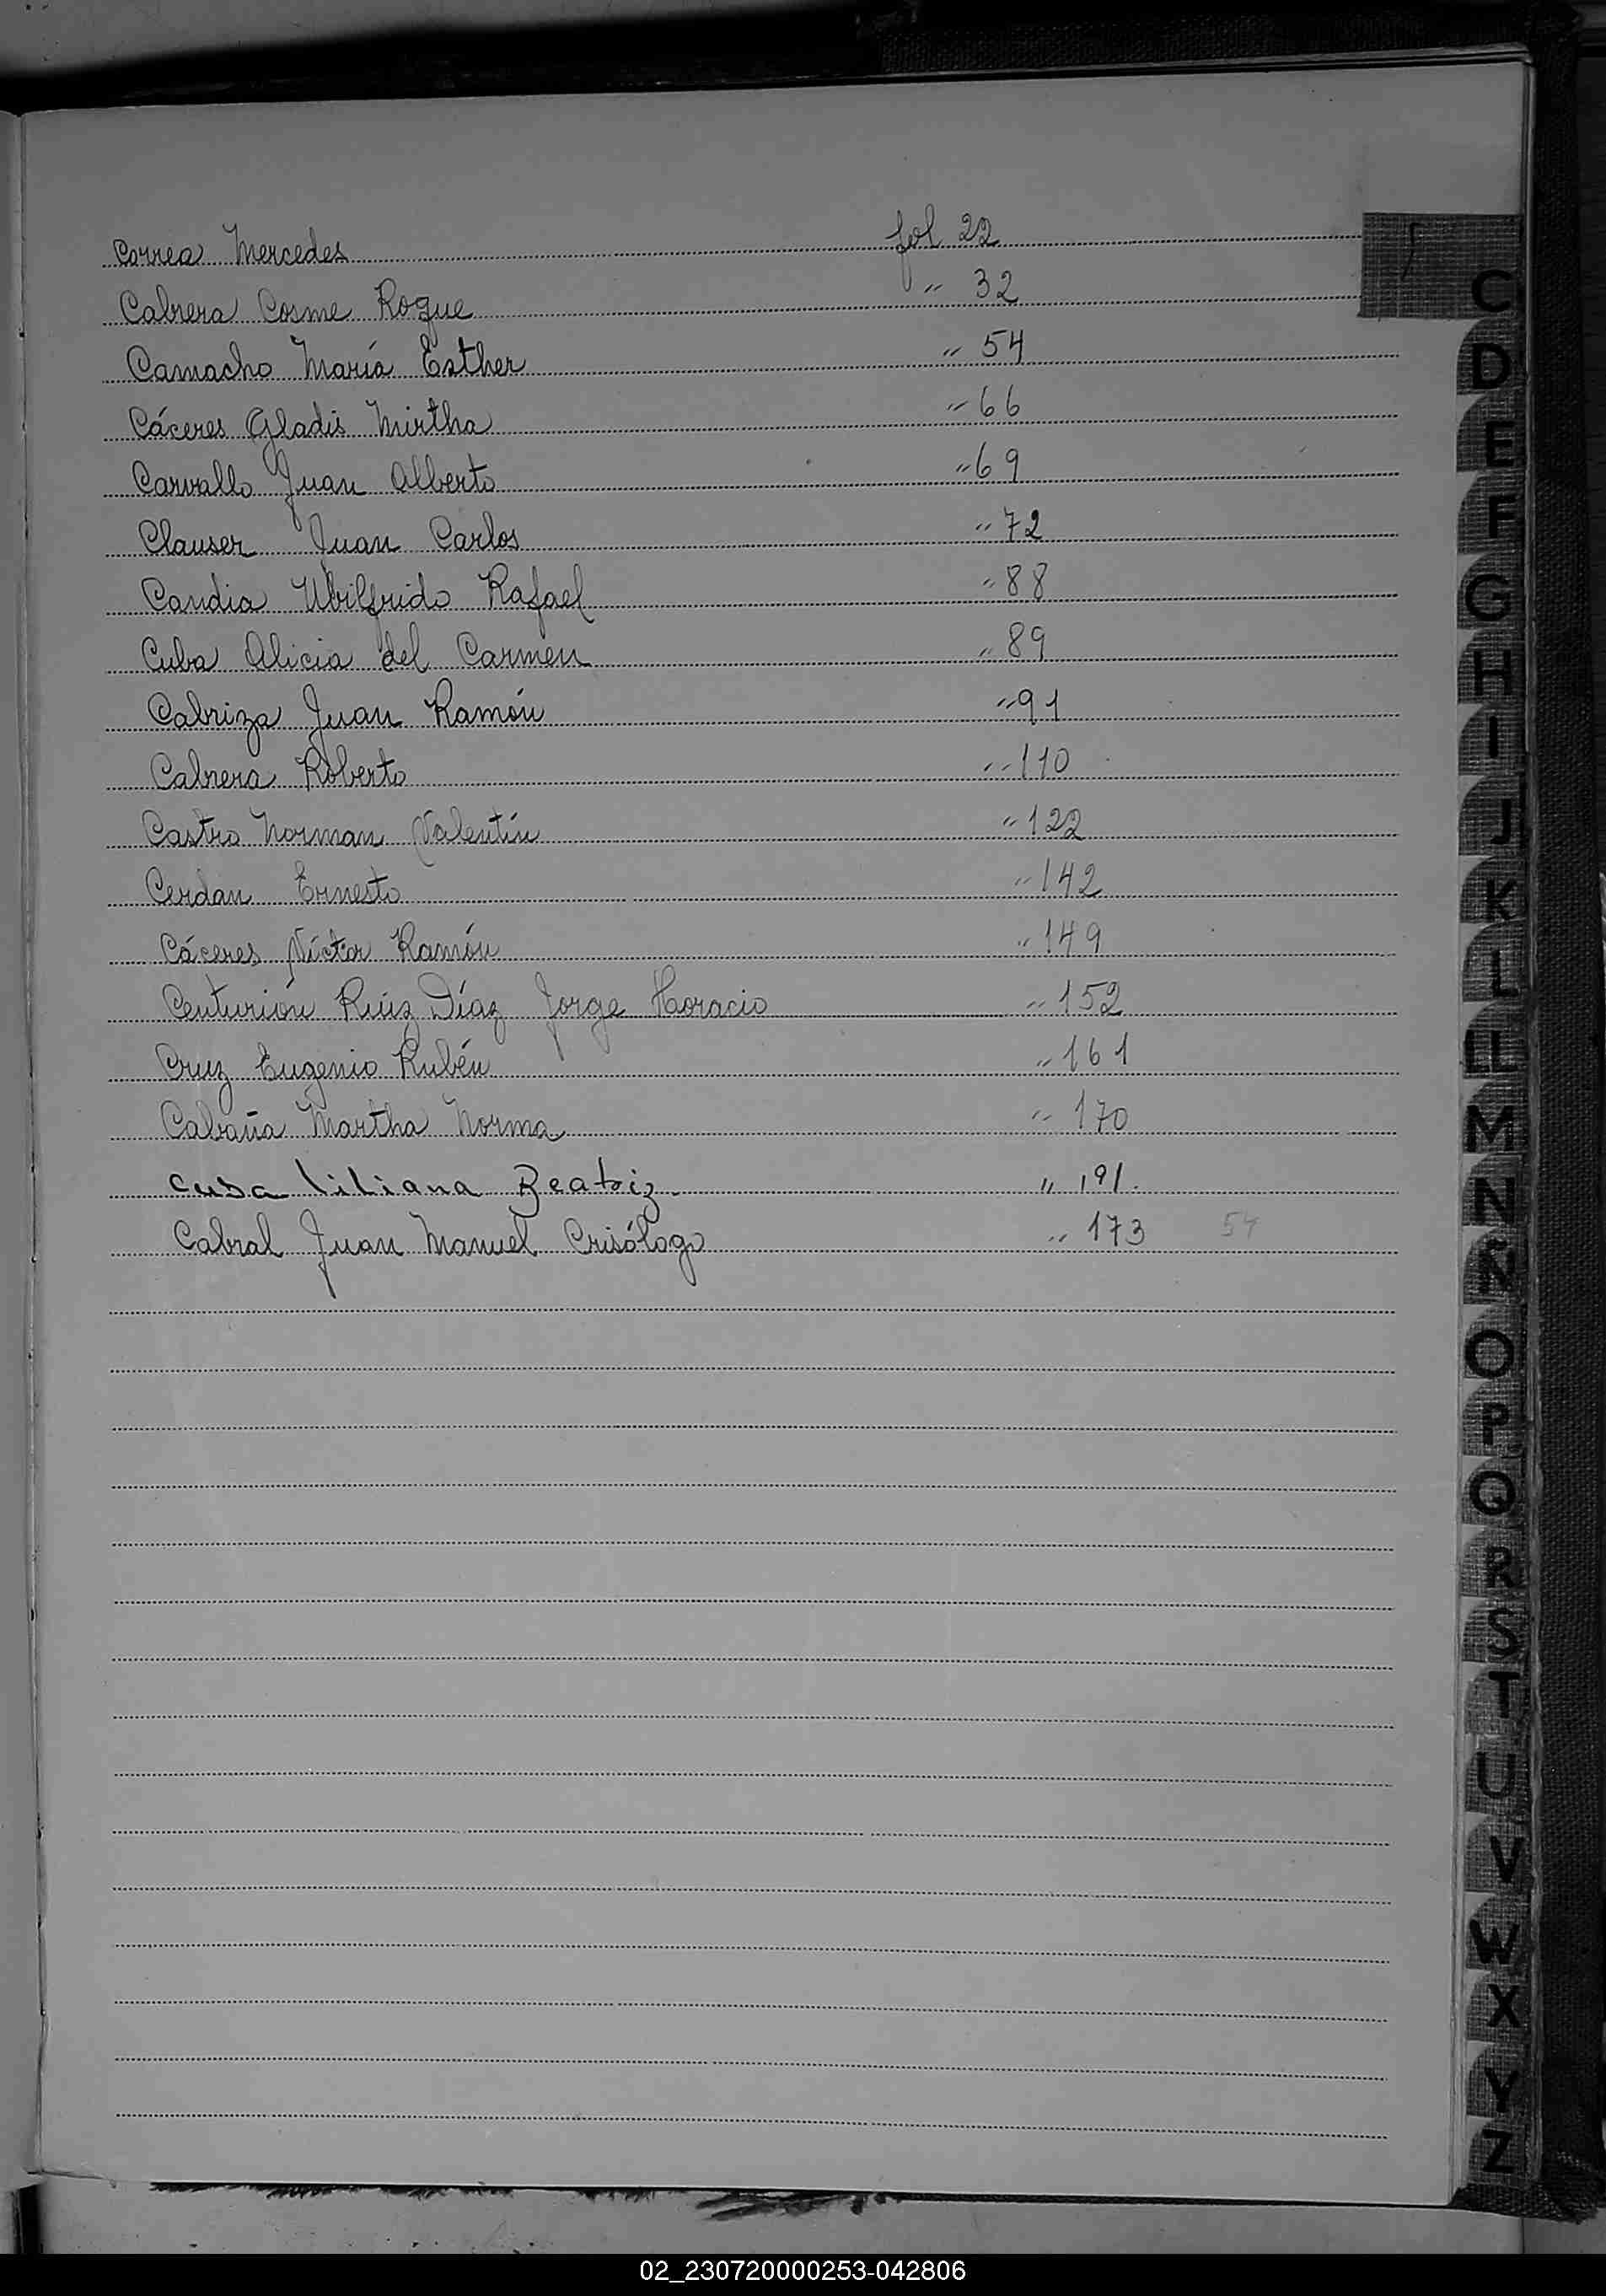 Correa Mercedes fol 22
Cabrera Cosme Roque " 32
Camacho María Esther " 54
Cáceres Gladis Mirtha " 66
Carvallo Juan Alberto " 69
Clauser Juan Carlos " 72
Candia Ubilfrido Rafael " 88
Cuba Alicia del Carmen " 89
Cabriza Juan Ramón " 91
Cabrera Roberto " 110
Castro Norman Valentín " 122
Cerdan Ernesto " 142
Cáceres Víctor Ramón " 149
Centurión Ruíz Díaz Jorge Horacio " 152
Cruz Eugenio Rubén " 161
Cabaña Martha Norma " 170
Cuba Liliana Beatriz. " 191.
Cabral Juan Manuel Crisólogo " 173 54
C
D
E
F
G
H
I
J
K
L
LL
M
N
Ñ
O
P
Q
R
S
T
U
V
W
X
Y
Z
02_230720000253-042806